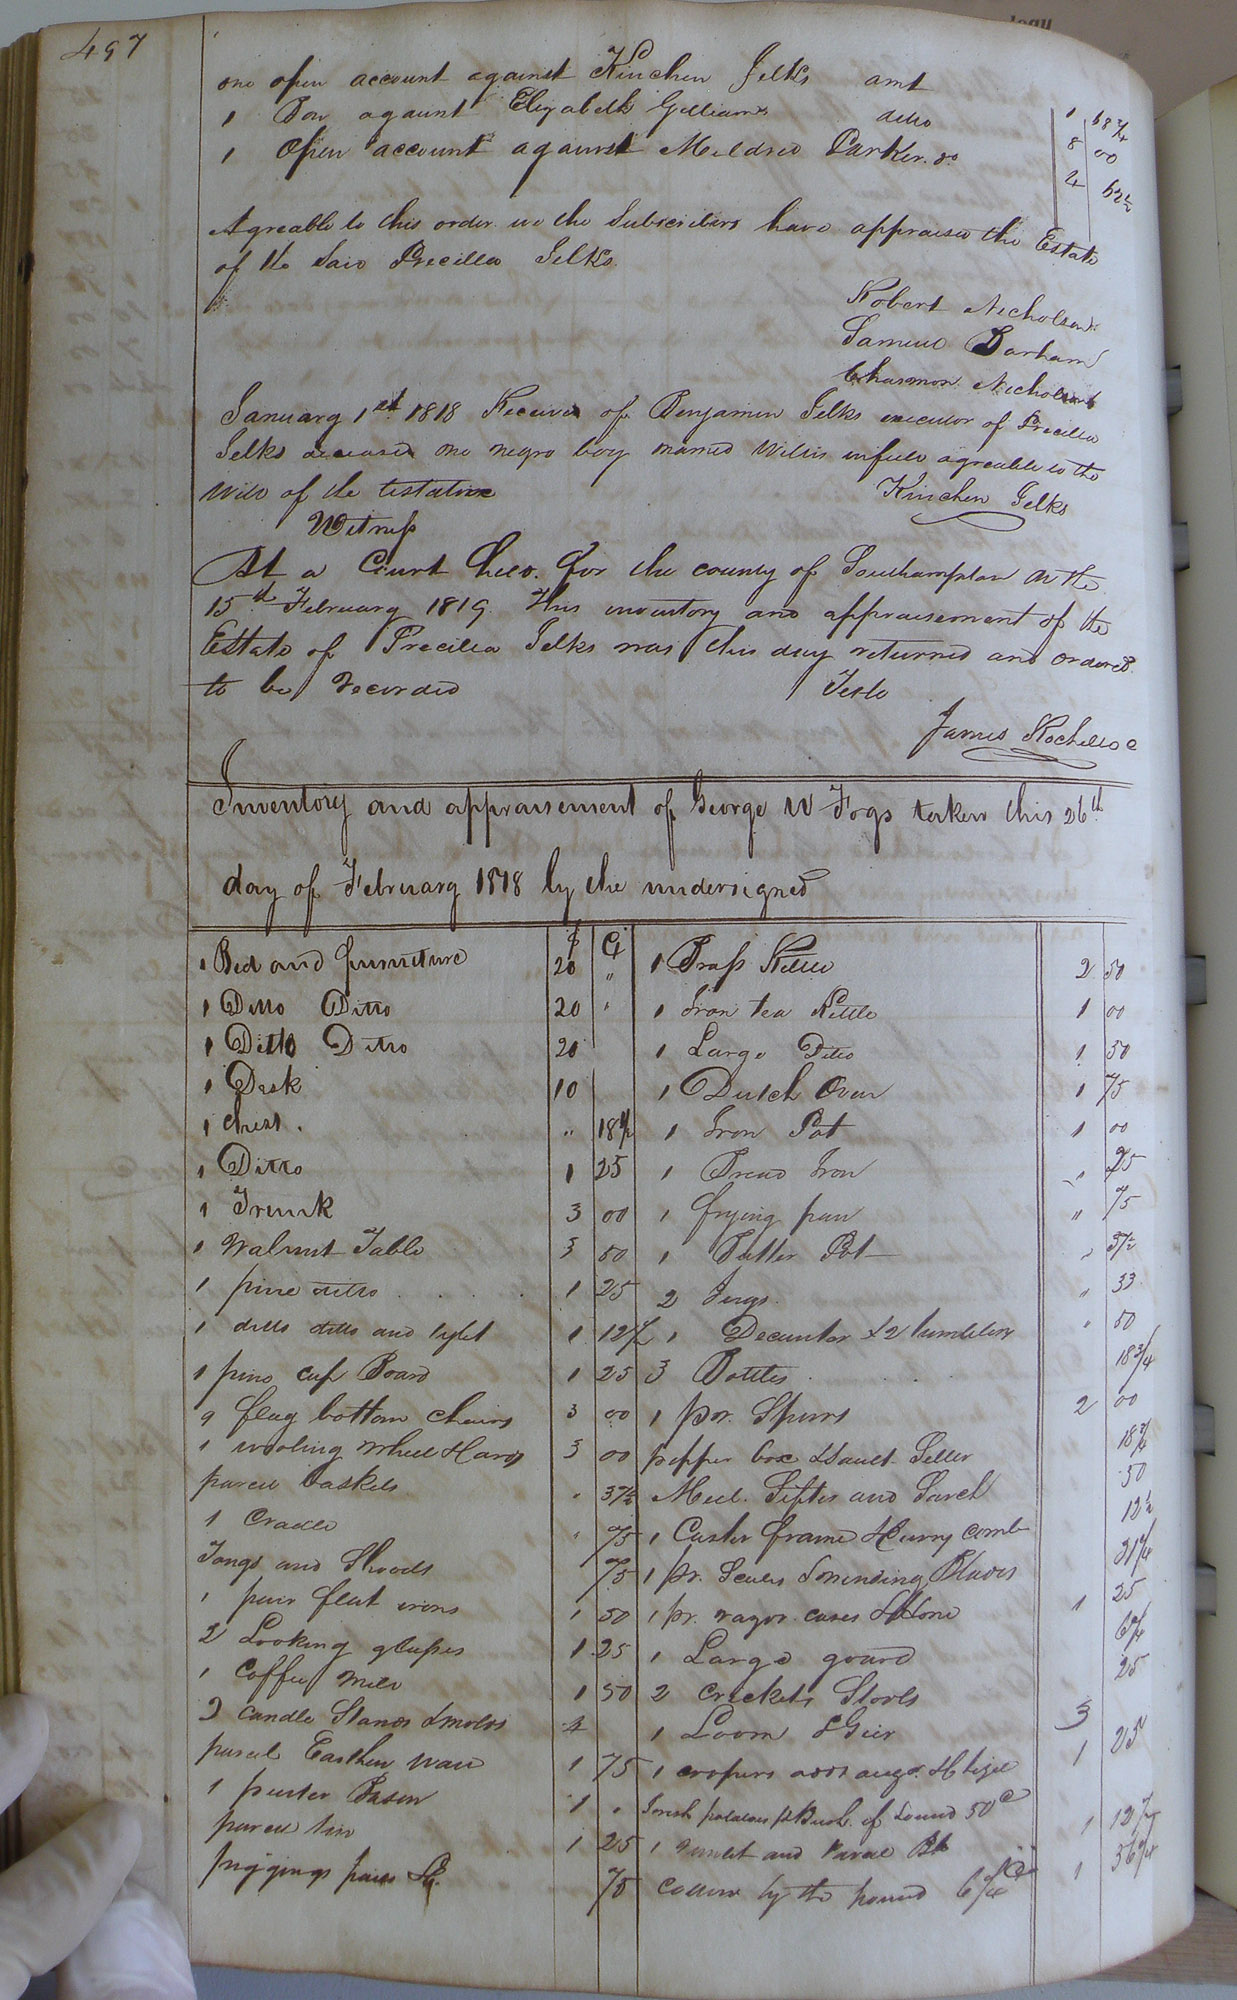 497
one open account against Kinchen Jelks amt 1 68 3/4
1 Bon against Elizabeth Gilliam ditto 8 00
1 Open account against Mildred Parker do 4 62 1/2
Agreable to this order we the Subscribers have appraised the Estate
of the Said Precilla Jelks
Robert Nicholson
Samuel Darham
Nicholson
January 1st 1818 Received of Benjamin Jelks executor of Precilla
Jelks deceased one negro boy named Willis in full agreable to the
Will of the testatrix Kinchen Jelks
Witness
At a Court held for the county of Southampton on the
15th February 1819 This inventory and appraisement of the
Estate of Precilla Jelks was this day returned and ordered
to be recorded Teste
James Rochelle c
Inventory and appraisement of George W Fogs taken this 26th
day of February 1818 by the undersigned
$ C
1 Bed and furniture 20 " 1 Brass Kettle 2 50
1 Ditto Ditto 20 " 1 Iron tea Kettle 1 00
1 Ditto Ditto 20 1 Large Ditto 1 50
1 Desk 10 1 Dutch Oven 1 75
1 chest " 1 Iron Pot 1 00
1 Ditto 1 25 1 Bread Iron " 25
1 Trunk 3 00 1 frying pan " 75
1 Walnut Table 3 50 1 Butter Pot " 37 1/2
1 pine ditto 1 25 2 Jugs " 33
1 ditto ditto and 1 12 1/2 1 Decanter & 2 tumblers " 50
1 pine cup Board 1 25 3 Bottles 18 3/4
9 flag bottom chairs 3 00 1 par. Spurs 2 00
1 wooling wheel & Cards 3 00 pepper box & Sault Seller 18 3/4
parcel baskets " 37 1/2 Meel Sifter and Sarch 50
1 Cradle " 75 1 Caster frame & Curry comb 12 1/2
Tongs and Shovels 75 1 pr. Scales & Blades 31 1/4
1 pair flat irons 1 50 1 pr. razor cases & Hone 1 25
2 Looking glasses 1 25 1 Large gourd 6 1/4
1 Coffee Mill 1 50 2 crickets Stools 25
3 candle Stands & molds 4 1 Loom & Geer 3
parcel Earthen ware 1 75 1 coopers auger & Chizel 1 25
1 pewter Bason 1 " Irish potatoes pr Bush. 50c
parcel tin 1 25 1 and 1 12 1/2
piggings pails &c. 75 cotton by the pound 6 1/4 c 1 56 1/4